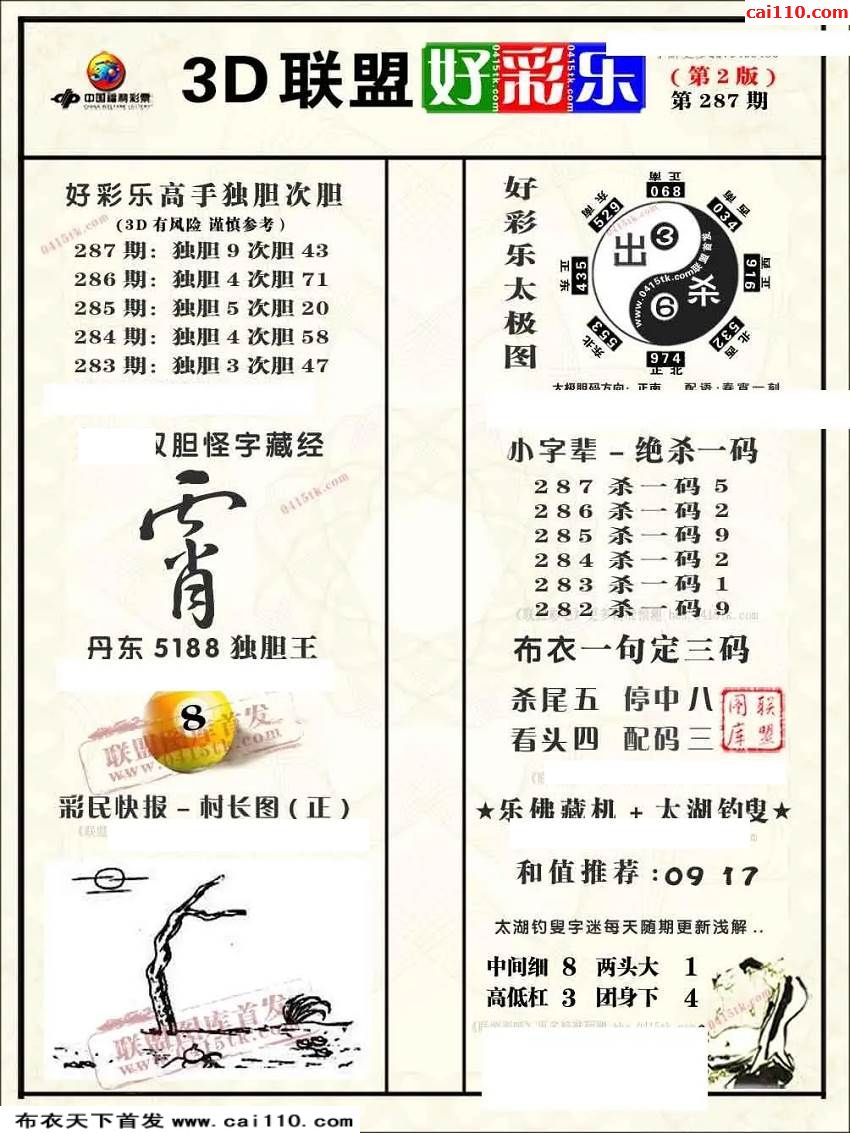 cai110.com
中国福利彩票
CHINA WELFARE LOTTERY
3D联盟好彩乐
0415tk.com
0415tk.com
0415tk.com
(第2版)
第287期
好彩乐高手独胆次胆
(3D有风险 谨慎参考)
287期: 独胆9次胆43
286期: 独胆4次胆71
285期: 独胆5次胆20
284期: 独胆4次胆58
283期: 独胆3次胆47
0415tk.com
双胆怪字藏经
霄
0415tk.com
丹东5188独胆王
8
联盟图库首发
www.0415tk.com
彩民快报-村长图(正)
《联盟
联盟图库首发
www.0415tk.com
好彩乐太极图
正南
068
东南
529
西南
034
正东
435
正西
916
东北
553
西北
532
974
正北
出3
杀6
www.0415tk.com联盟首发
太极胆码方向: 正南 配语:春宵一刻
小字辈-绝杀一码
287杀一码5
286杀一码2
285杀一码9
284杀一码2
283杀一码1
282杀一码9
布衣一句定三码
杀尾五 停中八
看头四 配码三
联盟图库
★乐佛藏机+太湖钓叟★
和值推荐:09 17
太湖钓叟字迷每天随期更新浅解..
中间细 8 两头大 1
高低杠 3 团身下 4
0415tk.com
布衣天下首发 www.cai110.com